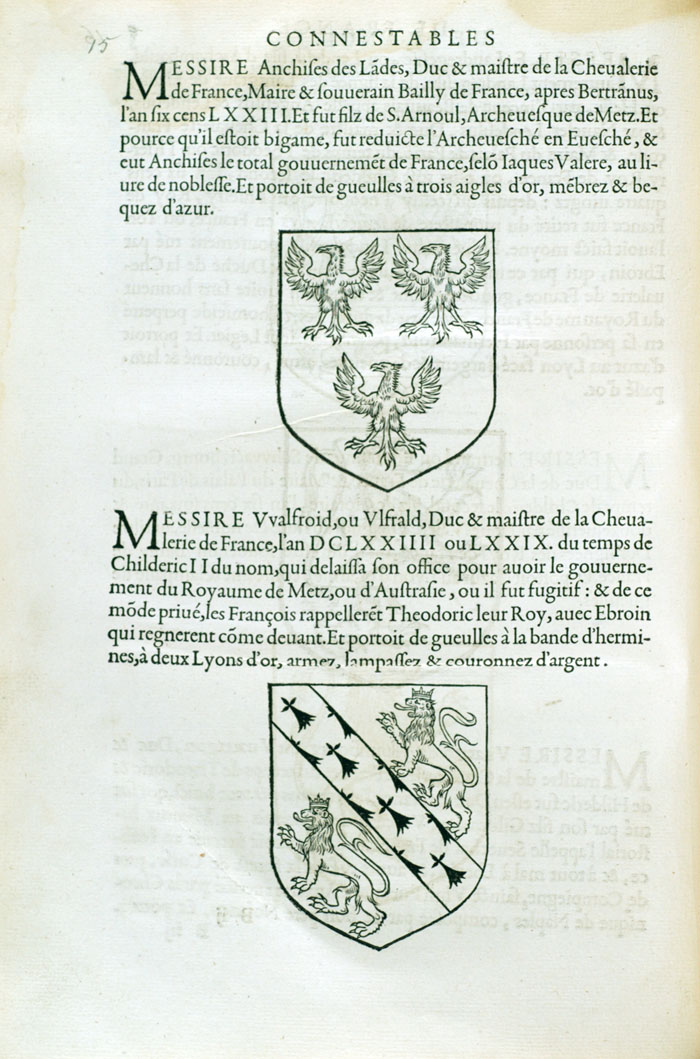 95
CONNESTABLES
MESSIRE Anchiſes des Lãdes, Duc & maiſtre de la Cheualerie
de France, Maire & ſouuerain Bailly de France, apres Bertrãnus,
l'an ſix cens LXXIII. Et fut filz de S. Arnoul, Archeueſque de Metz. Et
pource qu'il eſtoit bigame, fut reduicte l'Archeueſché en Eueſché, &
eut Anchiſes le total gouuernemẽt de France, ſelõ Iaques Valere, au li-
ure de nobleſſe. Et portoit de gueulles à trois aigles d'or, mẽbrez & be-
quez d'azur.
MESSIRE Vvalfroid, ou Vlfrald, Duc & maiſtre de la Cheua-
lerie de France, l'an DCLXXIIII ou LXXIX. du temps de
Childeric II du nom, qui delaiſſa ſon office pour auoir le gouuerne-
ment du Royaume de Metz, ou d'Auſtraſie, ou il fut fugitif : & de ce
mõde priué, les François rappellerẽt Theodoric leur Roy, auec Ebroin
qui regnerent cõme deuant. Et portoit de gueulles à la bande d'hermi-
nes, à deux Lyons d'or, armez, lampaſſez & couronnez d'argent.